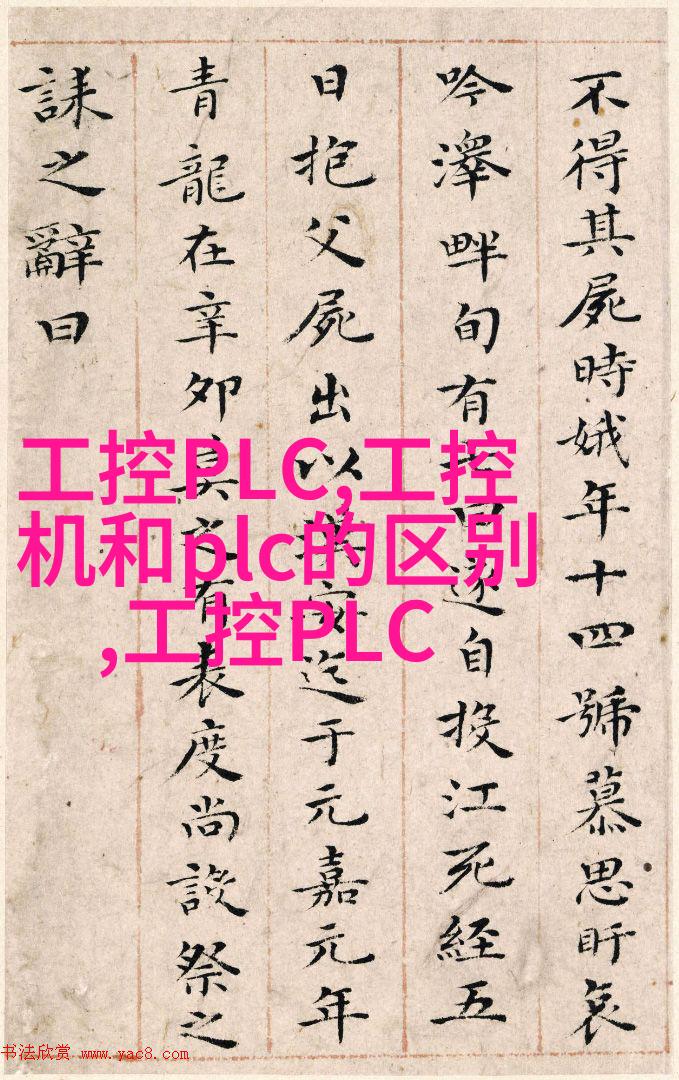 不得其屍時娥年十四號慕思盱哀
吟澤畔旬有七日遂自投江死經五
日抱父屍出以漢安迄于元嘉元年
青龍在辛卯莫之有表度尚設祭之
誄之辭曰
工控PLC,工控
机和plc的区别
,工控PLC
书法欣赏 www.yac8.com